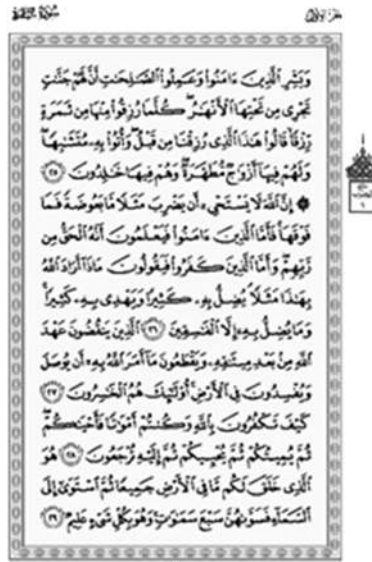 سُورَةُ البَقَرَةِ الجُزْءُ الأَوَّلُ
وَبَشِّرِ ٱلَّذِينَ ءَامَنُوا۟ وَعَمِلُوا۟ ٱلصَّـٰلِحَـٰتِ أَنَّ لَهُمْ جَنَّـٰتٍ
تَجْرِى مِن تَحْتِهَا ٱلْأَنْهَـٰرُ ۖ كُلَّمَا رُزِقُوا۟ مِنْهَا مِن ثَمَرَةٍ
رِّزْقًا ۙ قَالُوا۟ هَـٰذَا ٱلَّذِى رُزِقْنَا مِن قَبْلُ ۖ وَأُتُوا۟ بِهِۦ مُتَشَـٰبِهًا ۖ
وَلَهُمْ فِيهَآ أَزْوَٰجٌ مُّطَهَّرَةٌ ۖ وَهُمْ فِيهَا خَـٰلِدُونَ ٢٥
۞ إِنَّ ٱللَّهَ لَا يَسْتَحْىِۦٓ أَن يَضْرِبَ مَثَلًا مَّا بَعُوضَةً فَمَا
فَوْقَهَا ۚ فَأَمَّا ٱلَّذِينَ ءَامَنُوا۟ فَيَعْلَمُونَ أَنَّهُ ٱلْحَقُّ مِن
رَّبِّهِمْ ۖ وَأَمَّا ٱلَّذِينَ كَفَرُوا۟ فَيَقُولُونَ مَاذَآ أَرَادَ ٱللَّهُ
بِهَـٰذَا مَثَلًا ۘ يُضِلُّ بِهِۦ كَثِيرًا وَيَهْدِى بِهِۦ كَثِيرًا ۚ
وَمَا يُضِلُّ بِهِۦٓ إِلَّا ٱلْفَـٰسِقِينَ ٢٦ ٱلَّذِينَ يَنقُضُونَ عَهْدَ
ٱللَّهِ مِنۢ بَعْدِ مِيثَـٰقِهِۦ وَيَقْطَعُونَ مَآ أَمَرَ ٱللَّهُ بِهِۦٓ أَن يُوصَلَ
وَيُفْسِدُونَ فِى ٱلْأَرْضِ ۚ أُو۟لَـٰٓئِكَ هُمُ ٱلْخَـٰسِرُونَ ٢٧
كَيْفَ تَكْفُرُونَ بِٱللَّهِ وَكُنتُمْ أَمْوَٰتًا فَأَحْيَـٰكُمْ ۖ
ثُمَّ يُمِيتُكُمْ ثُمَّ يُحْيِيكُمْ ثُمَّ إِلَيْهِ تُرْجَعُونَ ٢٨ هُوَ
ٱلَّذِى خَلَقَ لَكُم مَّا فِى ٱلْأَرْضِ جَمِيعًا ثُمَّ ٱسْتَوَىٰٓ إِلَى
ٱلسَّمَآءِ فَسَوَّىٰهُنَّ سَبْعَ سَمَـٰوَٰتٍ ۚ وَهُوَ بِكُلِّ شَىْءٍ عَلِيمٌ ٢٩